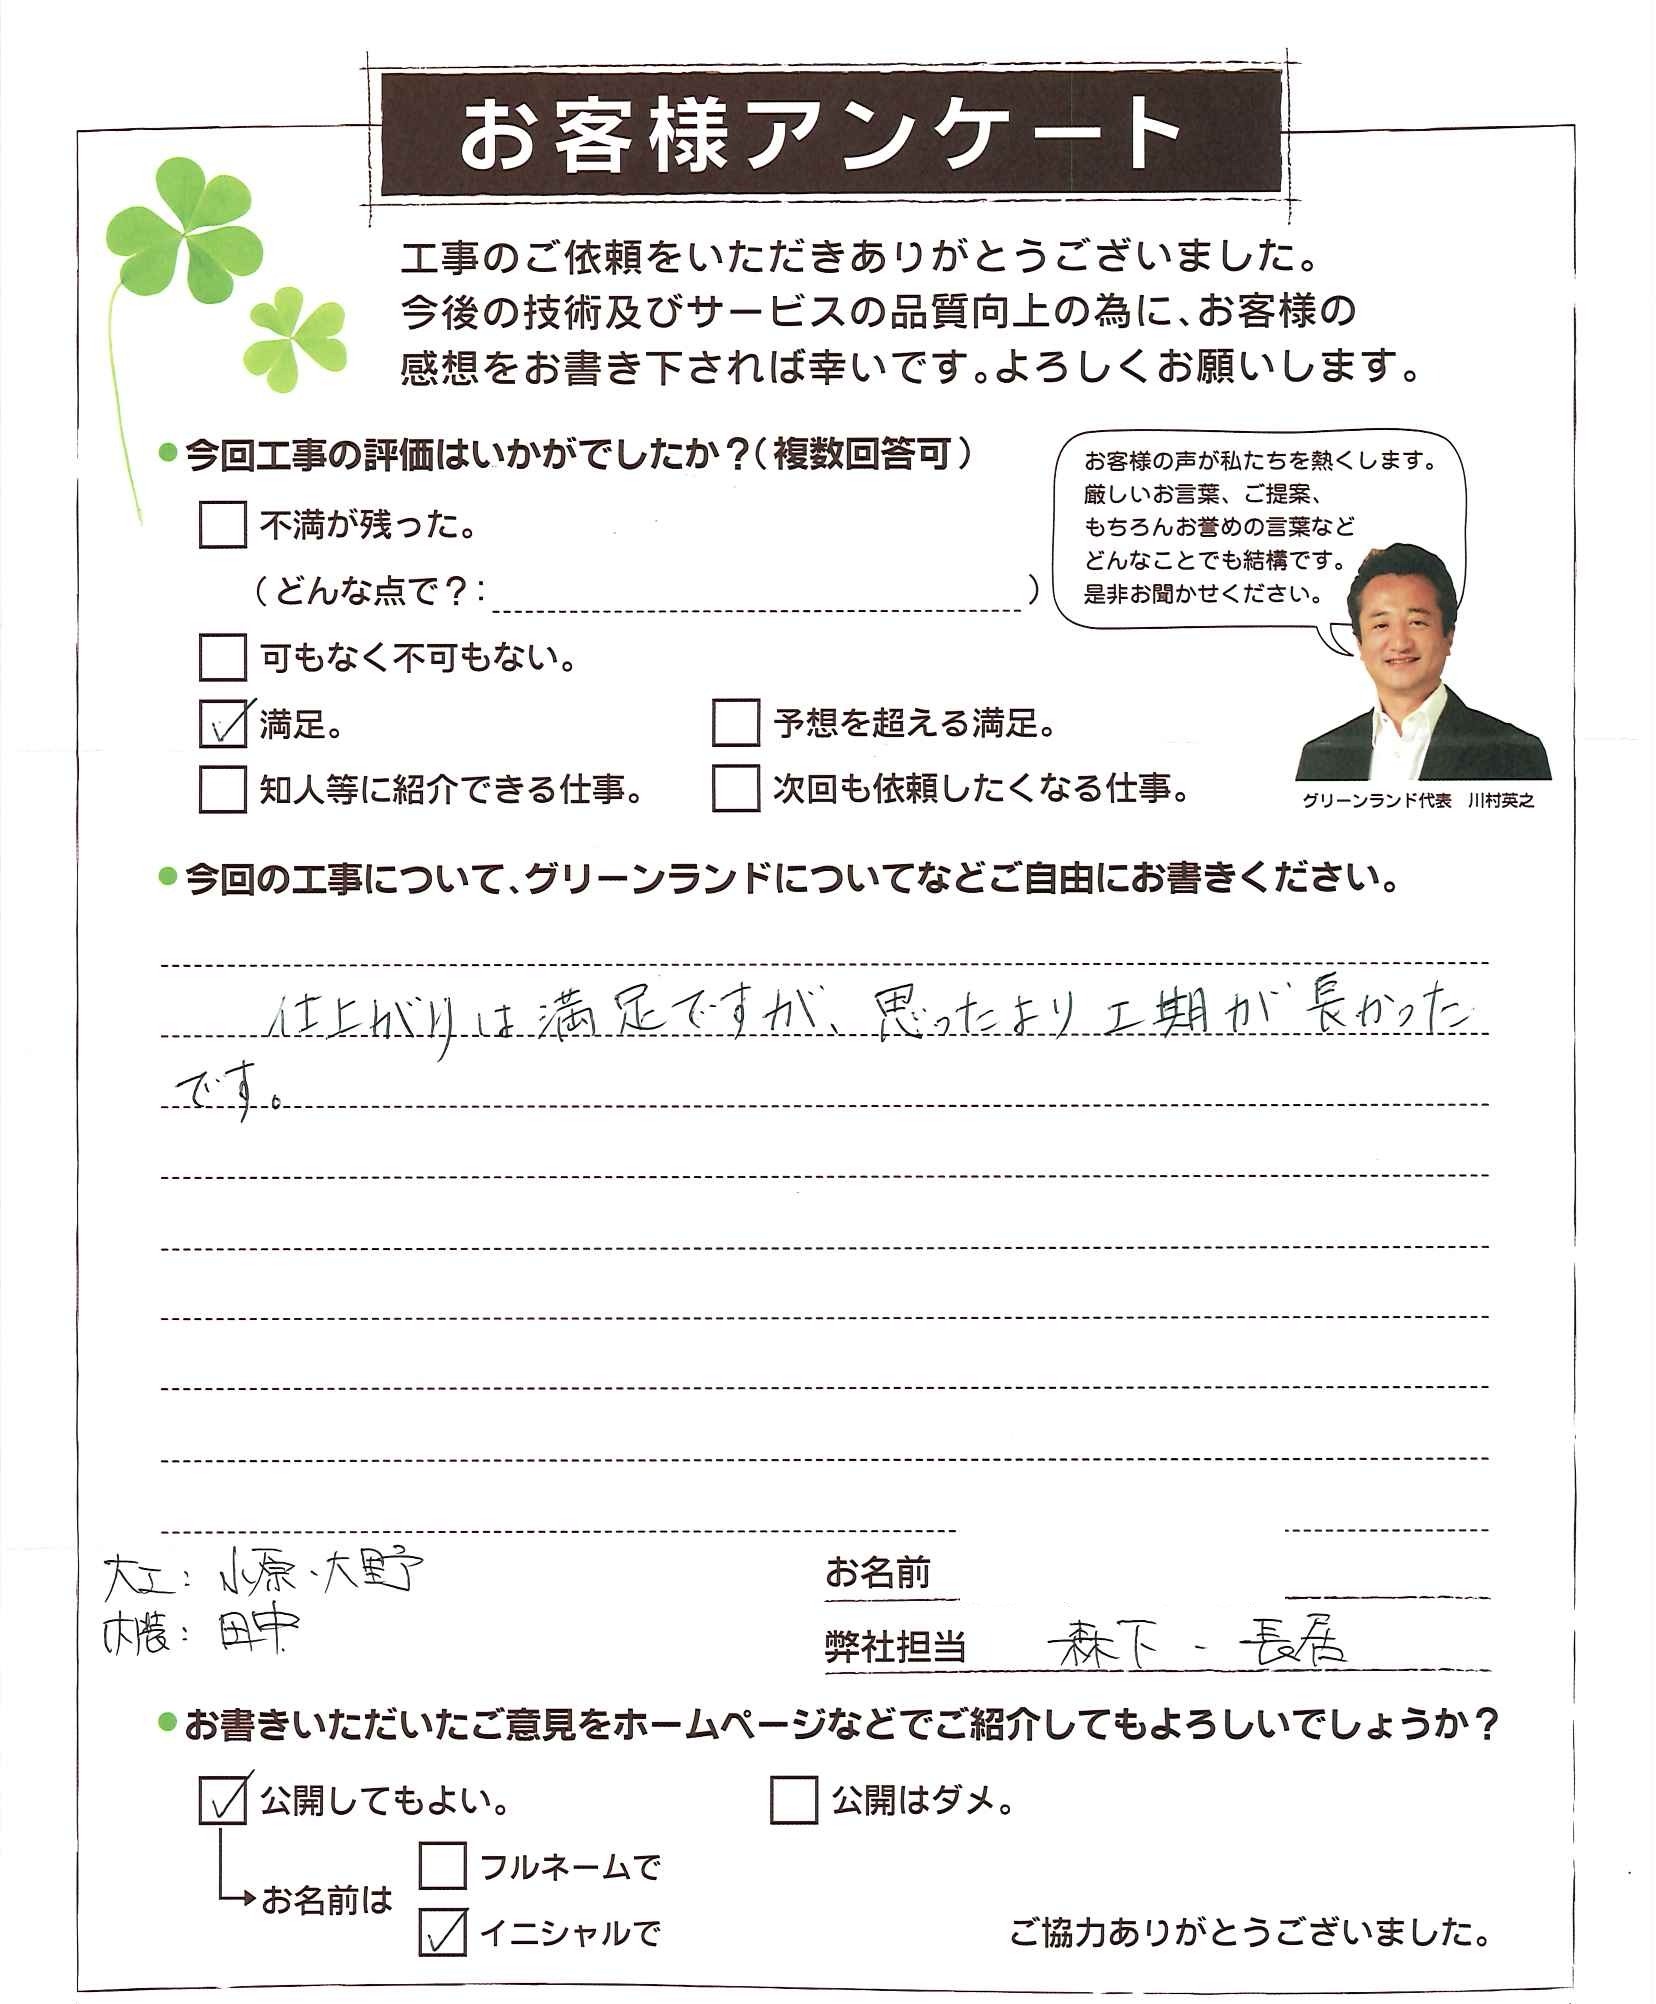 お客様アンケート
工事のご依頼をいただきありがとうございました。
今後の技術及びサービスの品質向上の為に、お客様の
感想をお書き下されば幸いです。よろしくお願いします。
●今回工事の評価はいかがでしたか?(複数回答可)
お客様の声が私たちを熱くします。
厳しいお言葉、ご提案、
もちろんお誉めの言葉など
どんなことでも結構です。
是非お聞かせください。
不満が残った。
(どんな点で?: )
可もなく不可もない。
満足。 予想を超える満足。
知人等に紹介できる仕事。 次回も依頼したくなる仕事。
グリーンランド代表 川村英之
●今回の工事について、グリーンランドについてなどご自由にお書きください。
仕上がりは満足ですが、思ったより工期が長かった
です。
大工: 小原・大野
内装: 田中
お名前
弊社担当 森下・長居
●お書きいただいたご意見をホームページなどでご紹介してもよろしいでしょうか?
公開してもよい。 公開はダメ。
お名前は フルネームで
イニシャルで
ご協力ありがとうございました。